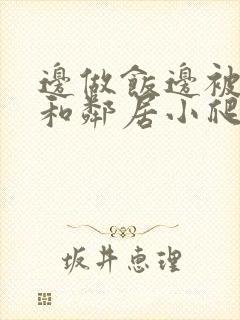 邊做飯邊被
和鄰居小爬
坂井惠理